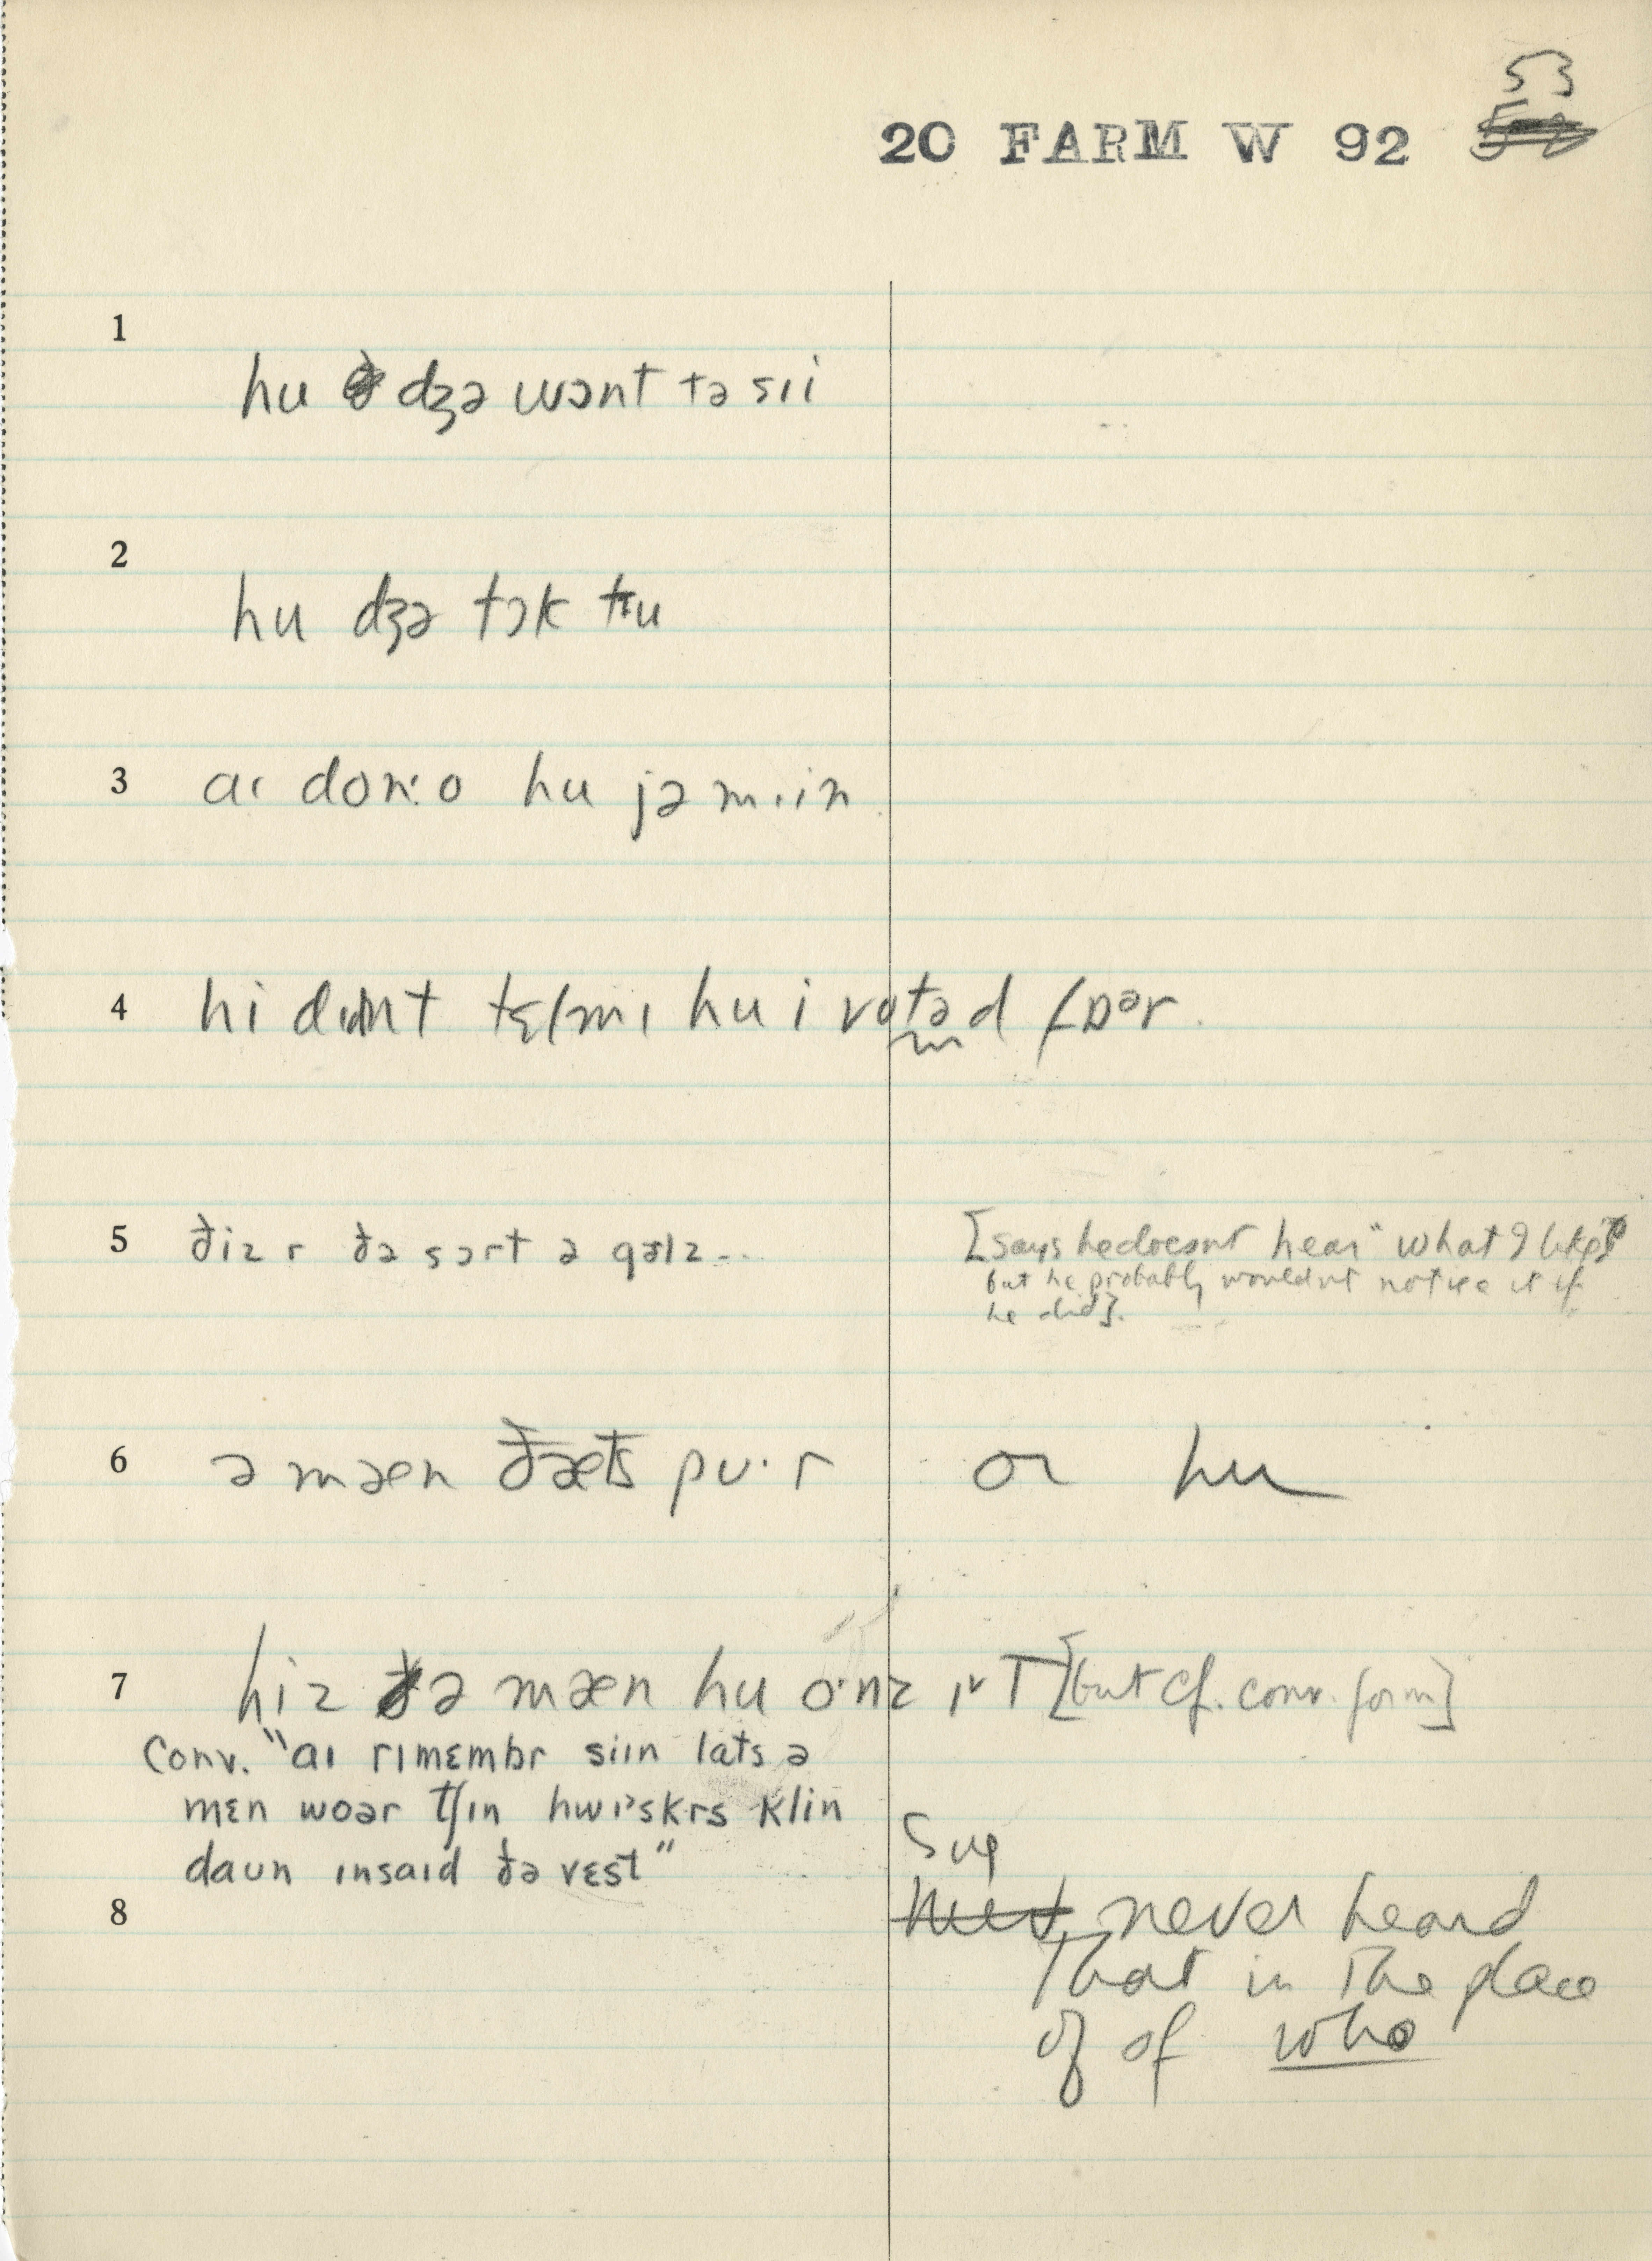 53
20 FARM W 92
1
hu dʒə wɔnt tə sɪi
2
hu dʒə tɔk tɪu
3 aɪ don:o hu jə mɪin
4 hi didnt tɛlmɪ hu i votəd fɒər
5 ðiz r ðə sɔrt ə gəlz... [says he doesnt hear "what I like"
but he probably wouldnt notice it if
he did].
6 ə mæn ðæts pu·r or hu
7 hiz ðə mæn hu o·nz ɪt [but cf. conv. form]
Conv. "aɪ rɪmɛmbr siɪn lats ə
mɛn woər tʃɪn hwɪskrs klin
daun ɪnsaɪd ðə vɛst"
Sug
8 never heard
that in the place
of of who